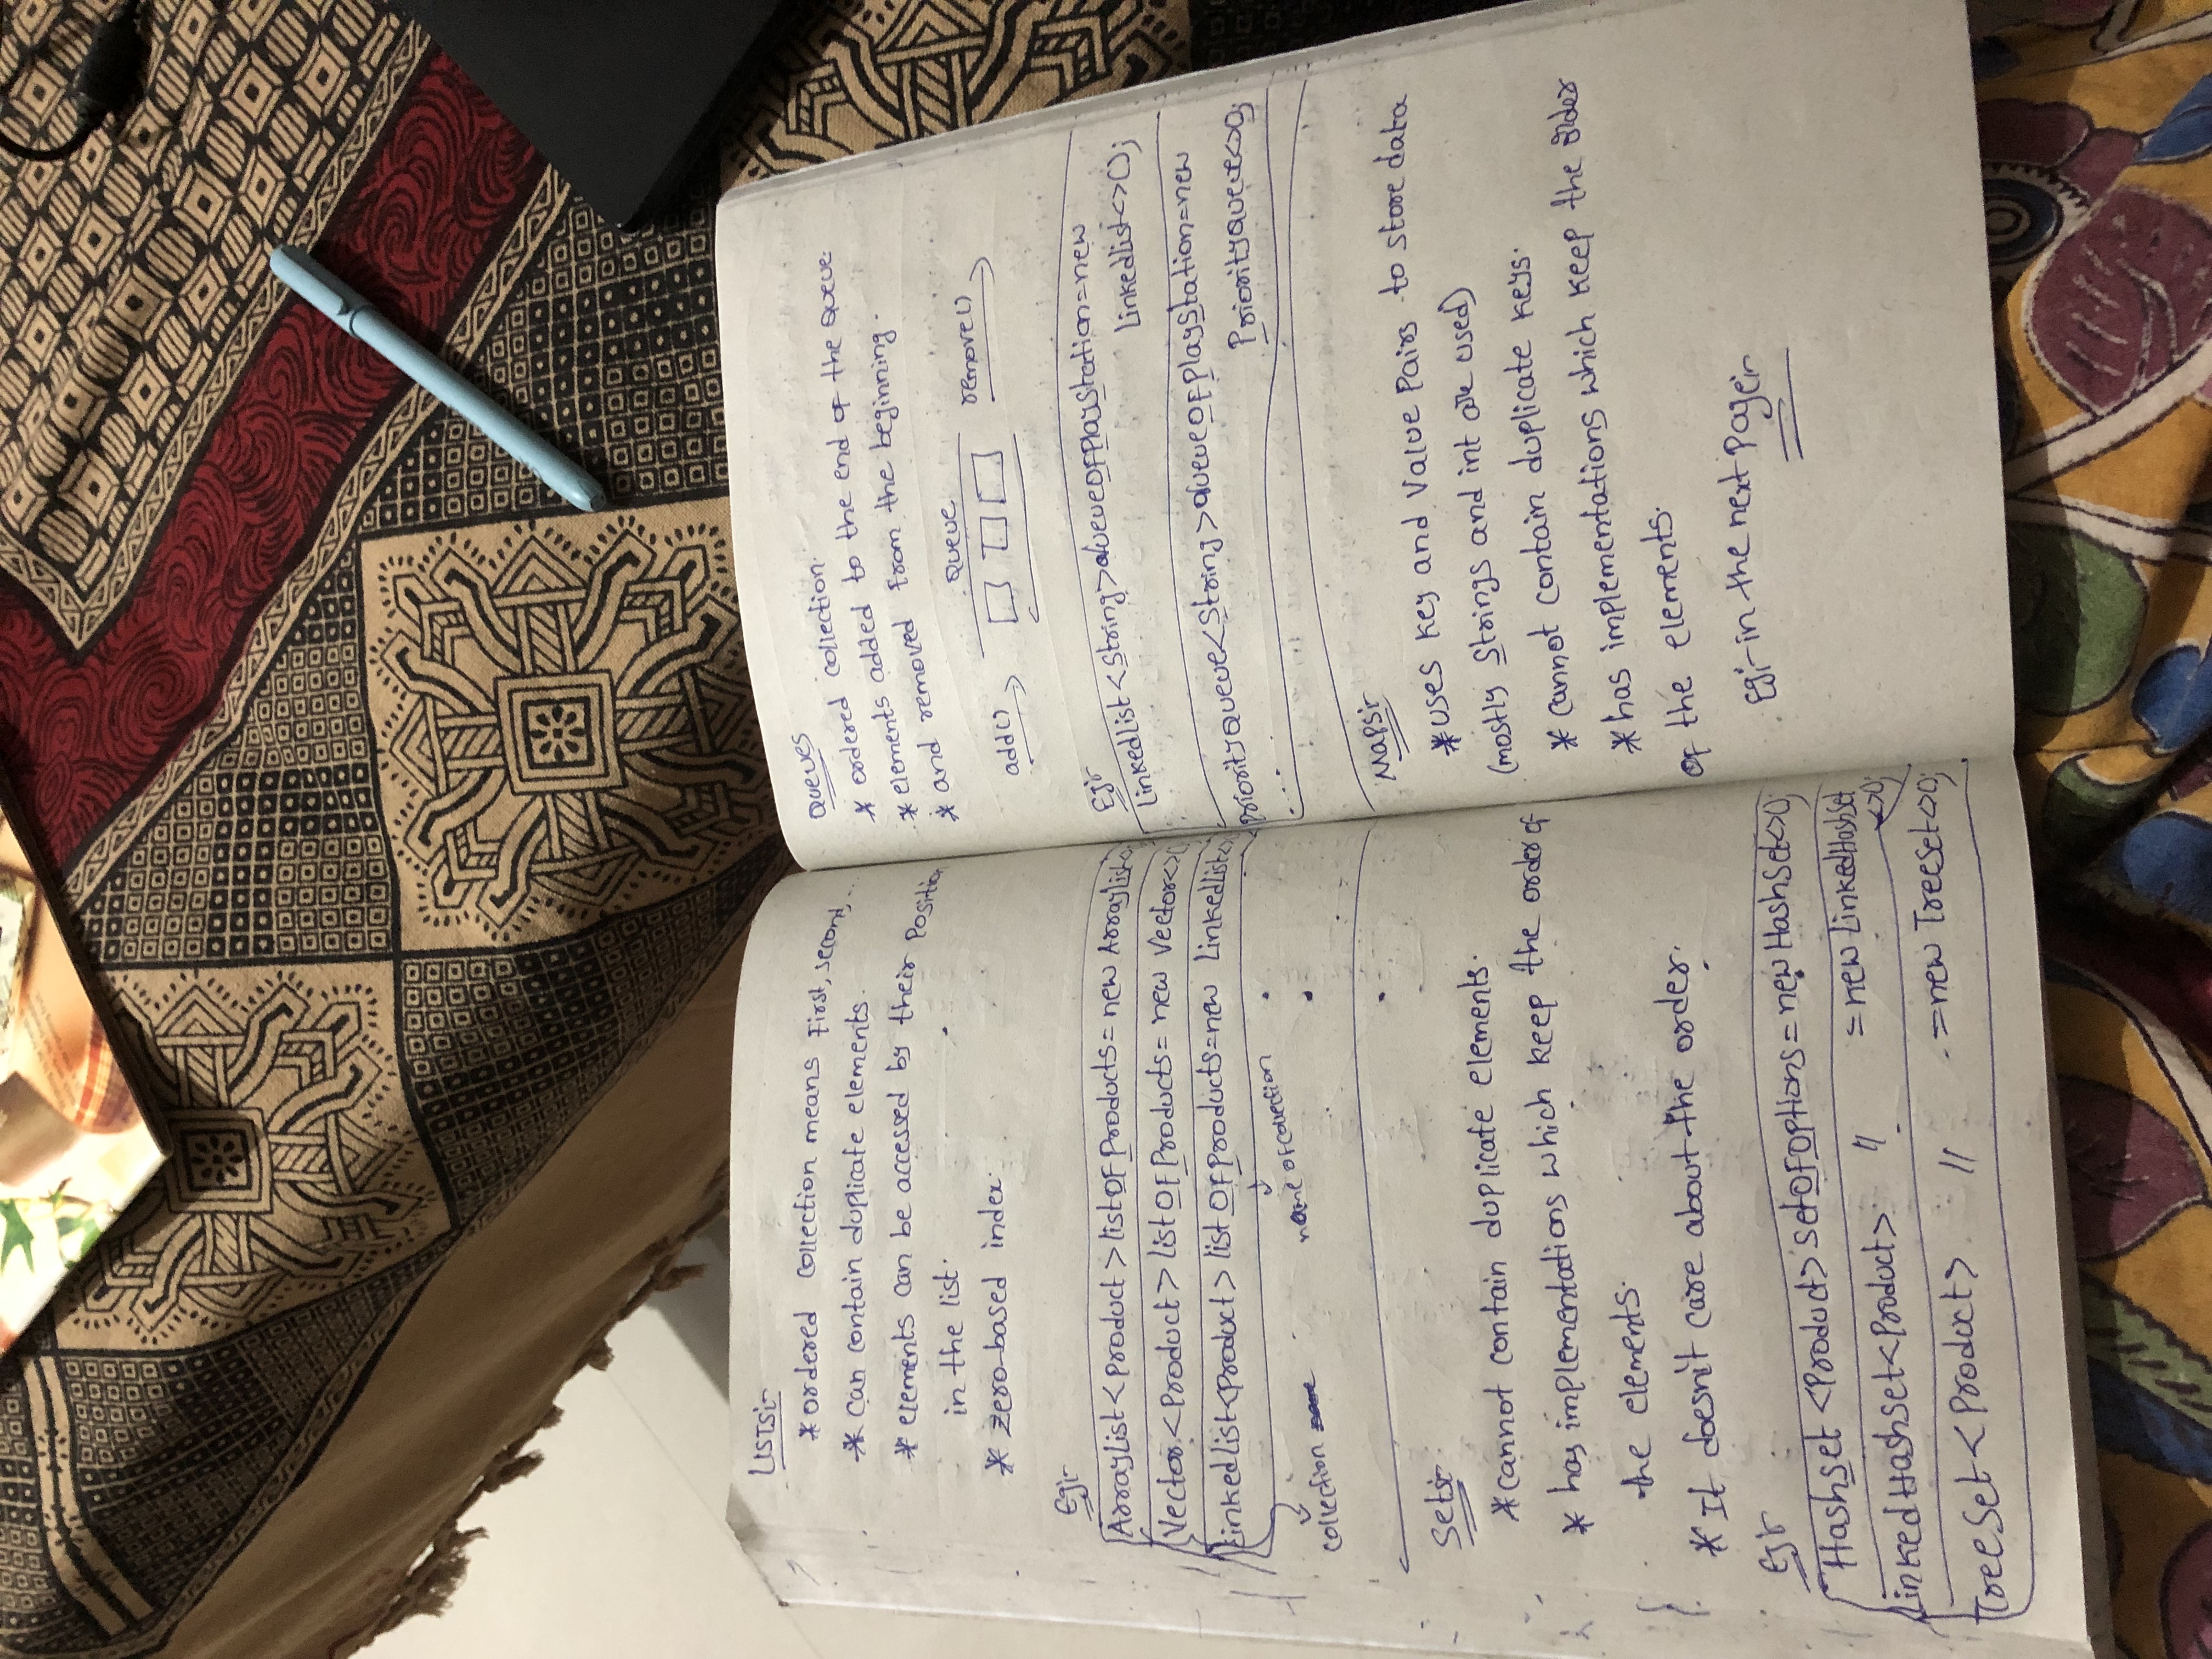 LISTS:-
* ordered collection means First, second, ...
* can contain duplicate elements.
* elements can be accessed by their position
in the list.
* zero-based index.
Eg:-
ArrayList<Product> listOfProducts = new ArrayList<>
Vector<Product> listOfProducts = new Vector<>()
LinkedList<Product> listOfProducts = new LinkedList<>
collection
name of collection
Sets:-
* cannot contain duplicate elements.
* has implementations which keep the order of
the elements.
* It doesn't care about the order.
Eg:-
Hashset <Product> setOfOptions = new HashSet<>();
LinkedHashSet<Product> " = new LinkedHashSet
<>();
TreeSet<Product> " = new TreeSet<>();
Queues
* ordered collection.
* elements added to the end of the Queue.
* and removed from the beginning.
Queue
add()
remove()
Eg:-
LinkedList<String> queueOfPlayStation = new
LinkedList<>();
PriorityQueue<String> queueOfPlayStation = new
PriorityQueue<>();
....
Maps:-
* uses key and value pairs to store data
(mostly Strings and int are used)
* cannot contain duplicate keys.
* has implementations which keep the order
of the elements.
Eg:- in the next page:-